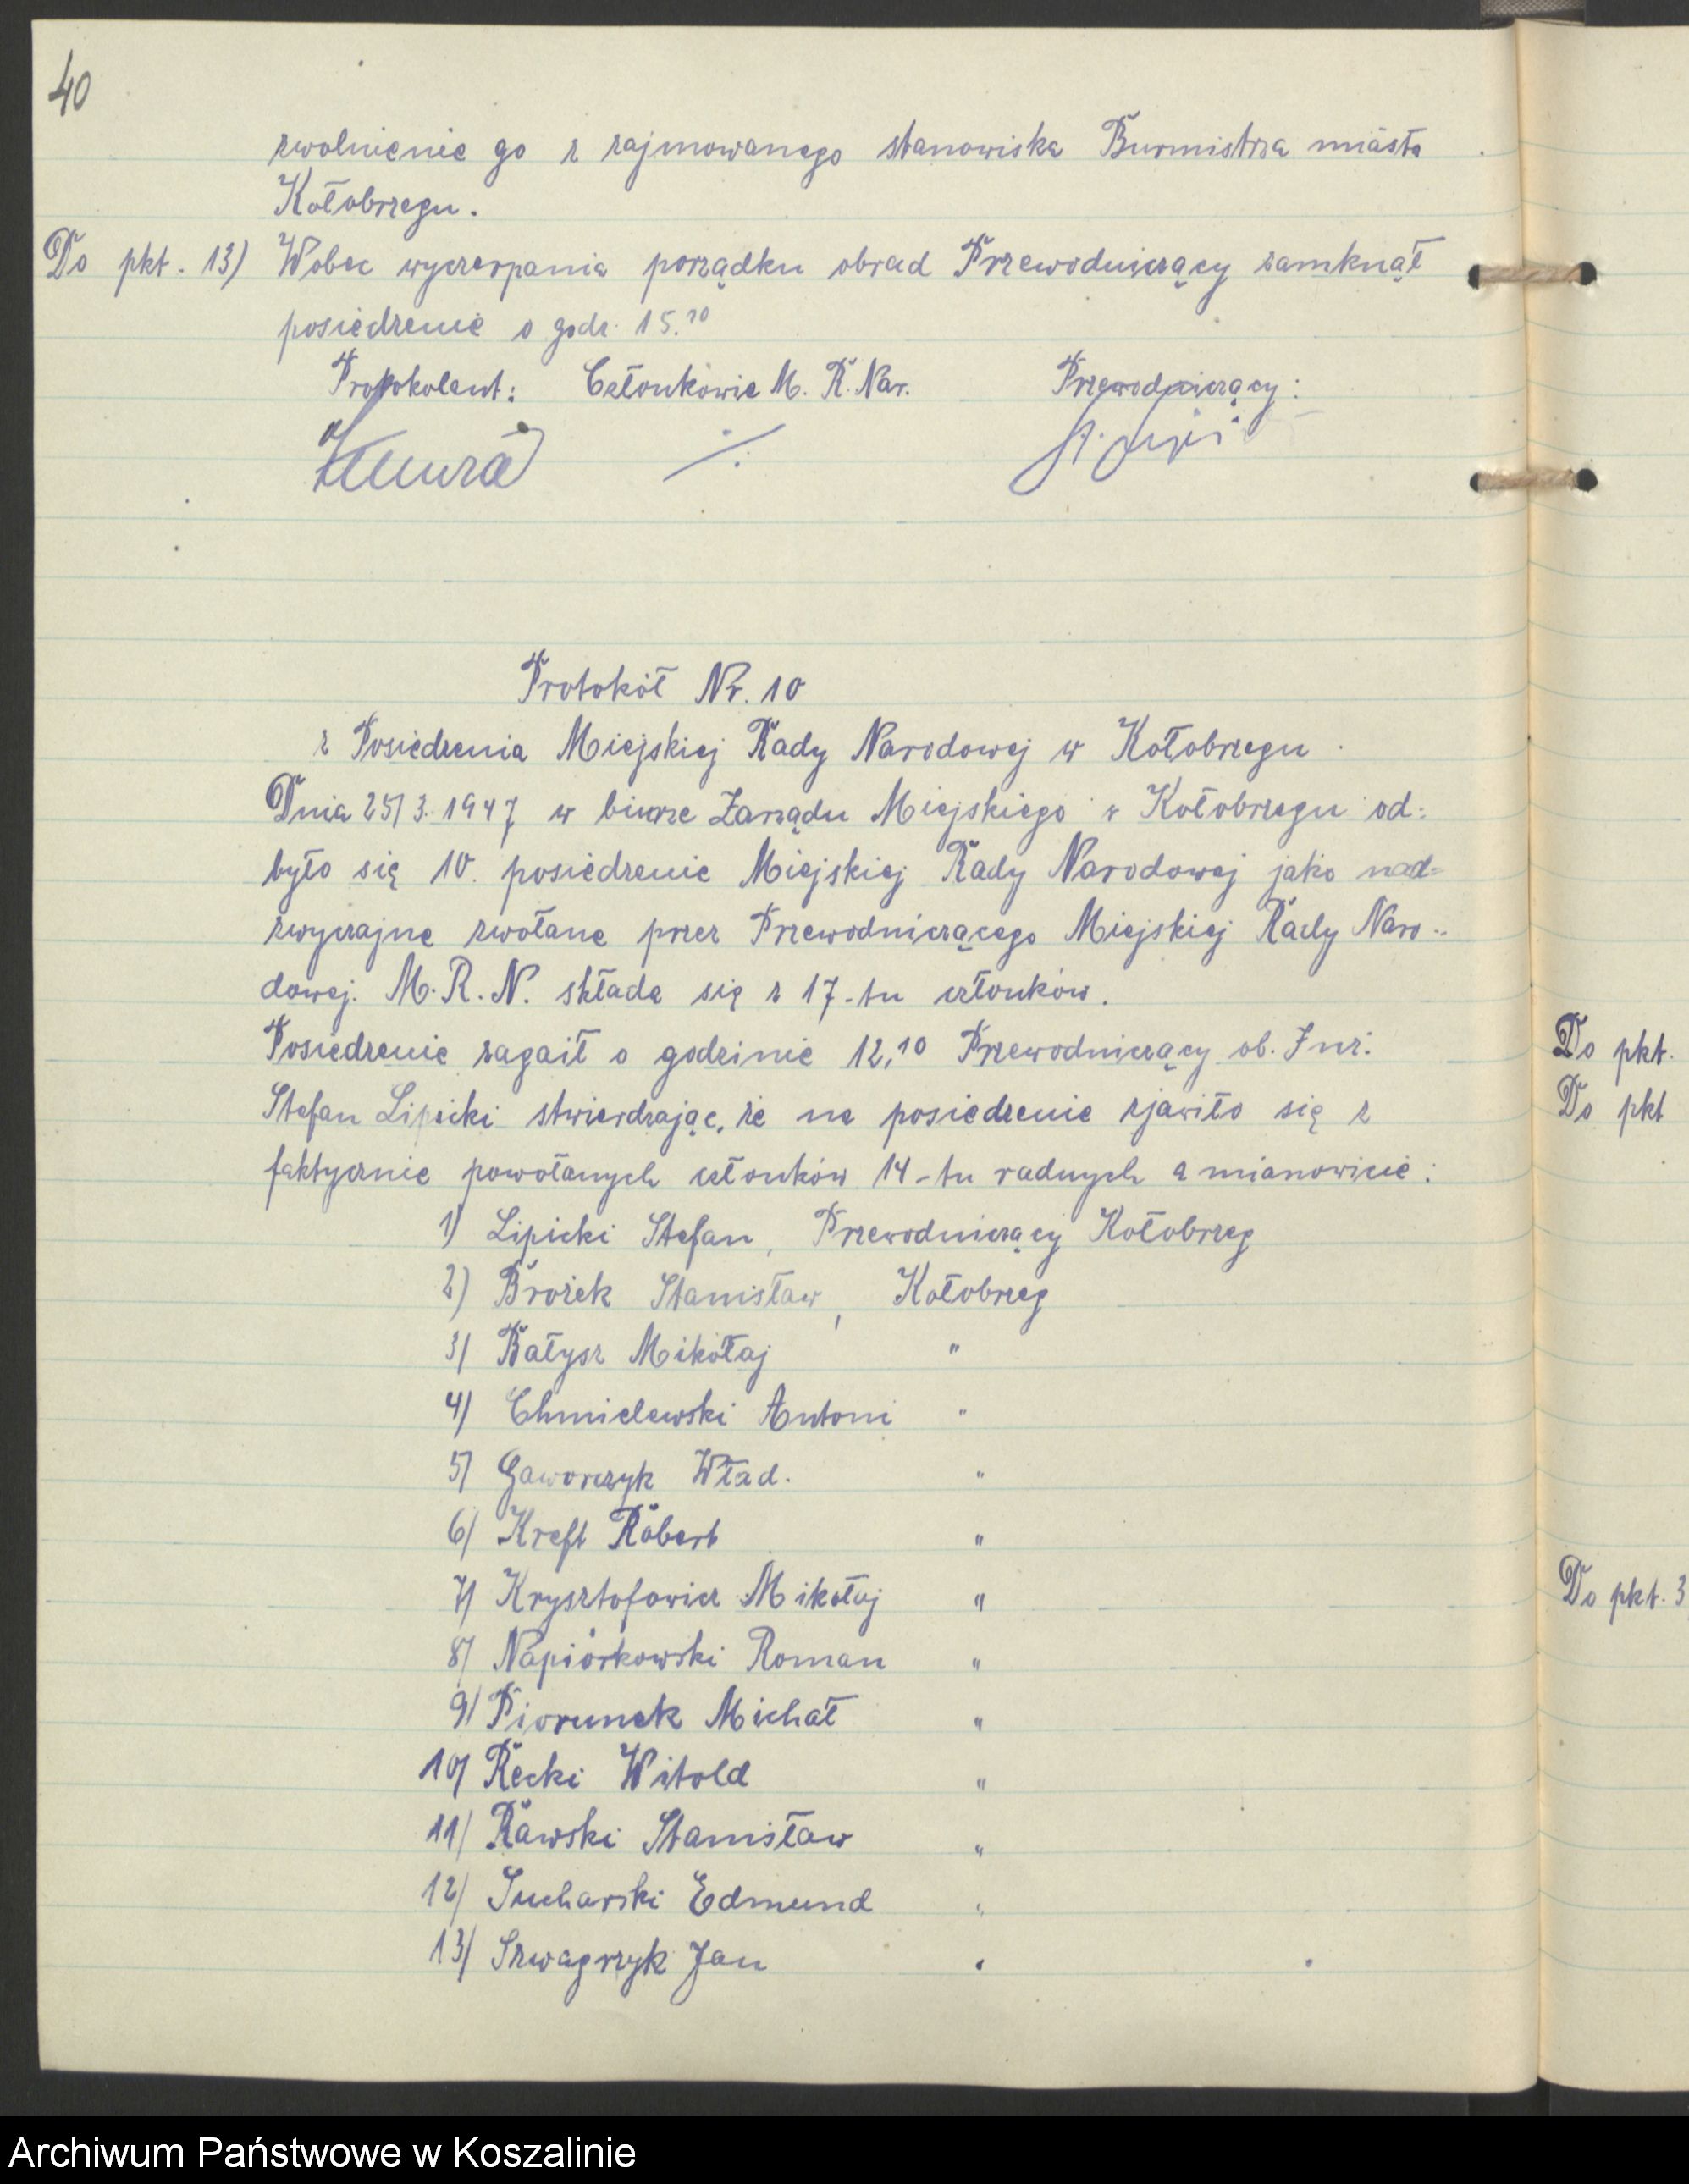 40
zwolnienie go z zajmowanego stanowiska Burmistrza miasta
Kołobrzegu.
Do pkt. 13) Wobec wyczerpania porządku obrad Przewodniczący zamknął
posiedzenie o godz. 15.
Protokolant: Członkowie M. R. Nar. Przewodniczący:
Protokół Nr. 10
z Posiedzenia Miejskiej Rady Narodowej w Kołobrzegu.
Dnia 25/3. 1947 w biurze Zarządu Miejskiego w Kołobrzegu od=
było się 10. posiedzenie Miejskiej Rady Narodowej jako nad=
zwyczajne zwołane przez Przewodniczącego Miejskiej Rady Naro=
dowej. M. R. N. składa się z 17-tu członków.
Posiedzenie zagaił o godzinie 12,10 Przewodniczący ob. Inż.
Stefan Lipicki stwierdzając, że na posiedzenie zjawiło się z
faktycznie powołanych członków 14-tu radnych a mianowicie:
1) Lipicki Stefan, Przewodniczący Kołobrzeg
2) Brożek Stanisław, Kołobrzeg
3) Bałysz Mikołaj "
4) Chmielewski Antoni "
5) Gaworczyk Wład. "
6) Kreft Robert "
7) Krysztofowicz Mikołaj "
8) Napiórkowski Roman "
9) Piorunek Michał "
10) Recki Witold "
11) Rawski Stanisław "
12) Sucharski Edmund "
13) Szwagrzyk Jan "
Do pkt.
Do pkt
Do pkt. 3
Archiwum Państwowe w Koszalinie